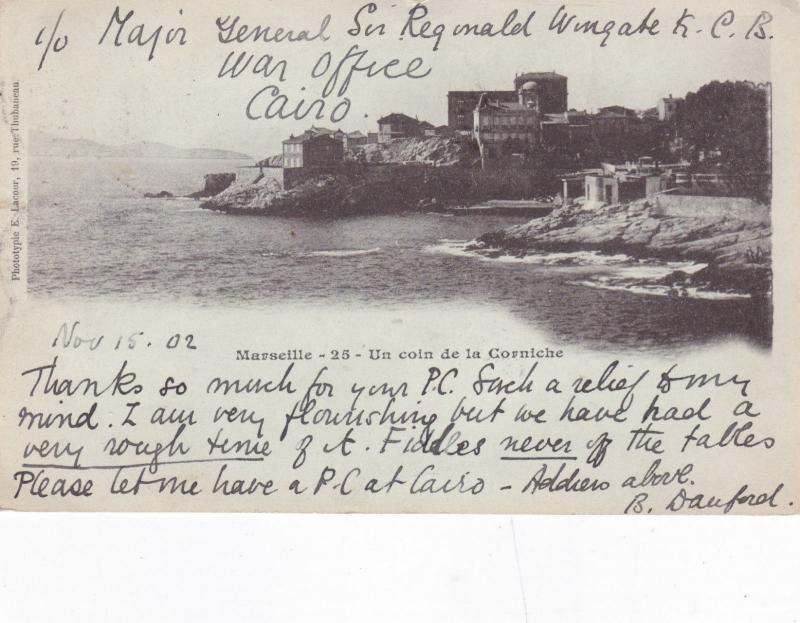 c/o Major General Sir Reginald Wingate K. C. B.
War Office
Cairo.
Phototypie E. Lacour, 19, rue Thubaneau.
Nov 15. 02
Marseille - 25 - Un coin de la Corniche
Thanks so much for your P.C. Such a relief to my
mind. I am very flourishing but we have had a
very rough time of it. Fiddles never off the tables
Please let me have a P-C at Cairo - Address above.
B. Danford.